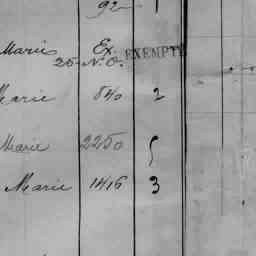 92 1
Marie Ex. EXEMPT
25 N.O.
Marie 840 2
Marie 2250 5
Marie 1416 3